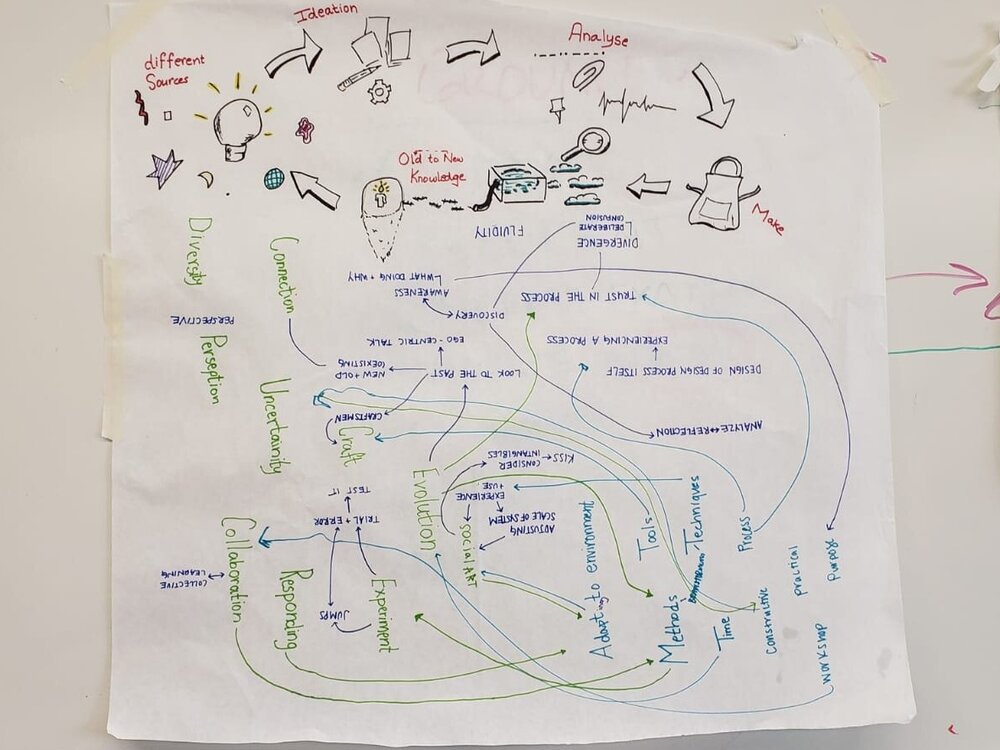 Ideation
different
Sources
Analyse
Old to New
Knowledge
Make
Diversity
Connection
PERSPECTIVE
Perseption
Uncertainity
Craft
Evolution
Collaboration
Responding
Experiment
FLUIDITY
DIVERGENCE
DELIBERATE
CONFUSION
TRUST IN THE PROCESS
AWARENESS
WHAT DOING + WHY
DISCOVERY
EGO-CENTRIC TALK
LOOK TO THE PAST
NEW + OLD
COEXISTING
CRAFTSMEN
EXPERIENCING A PROCESS
DESIGN OF DESIGN PROCESS ITSELF
ANALYZE ↔ REFLECTION
CONSIDER
INTANGIBLES
KISS
EXPERIENCE
+ USE
ADJUSTING
SCALE OF SYSTEM
SOCIAL ART
TRIAL + ERROR
TEST IT
JUMPS
COLLECTIVE
LEARNING
Adapting to environment
Tools
Techniques
Methods
Time
Process
Constructive
practical
Purpose
workshop